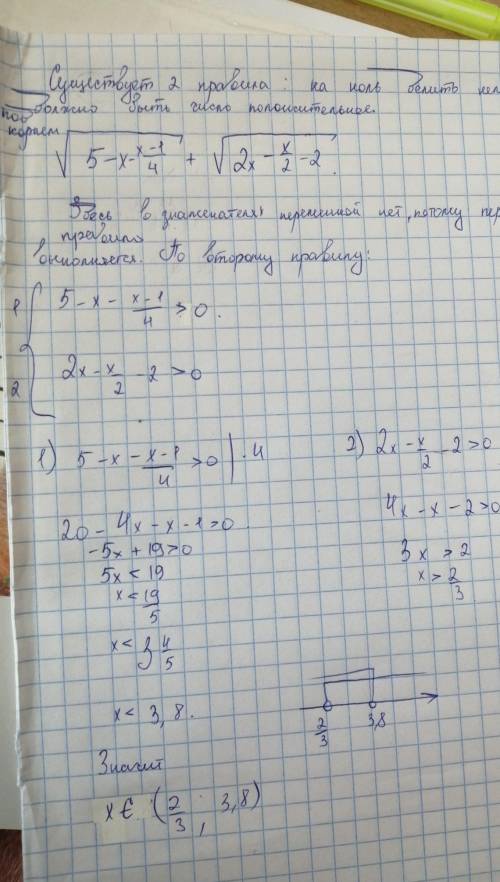 Существует 2 правила: на ноль делить нел
под должно быть число положительное.
корнем
√(5-x-(x-1)/4) + √(2x-x/2-2).
Здесь в знаменателях переменной нет, потому пер
правило
выполняется. По второму правилу:
1 5-x-(x-1)/4 > 0.
2 2x-x/2-2 > 0
1) 5-x-(x-1)/4 > 0 | ·4
2) 2x-x/2-2 > 0
20-4x-x-1 > 0
-5x+19 > 0
5x < 19
x < 19/5
x < 3 4/5
x < 3,8.
4x-x-2 > 0
3x > 2
x > 2/3
2/3 3,8
Значит
x ∈ (2/3; 3,8)